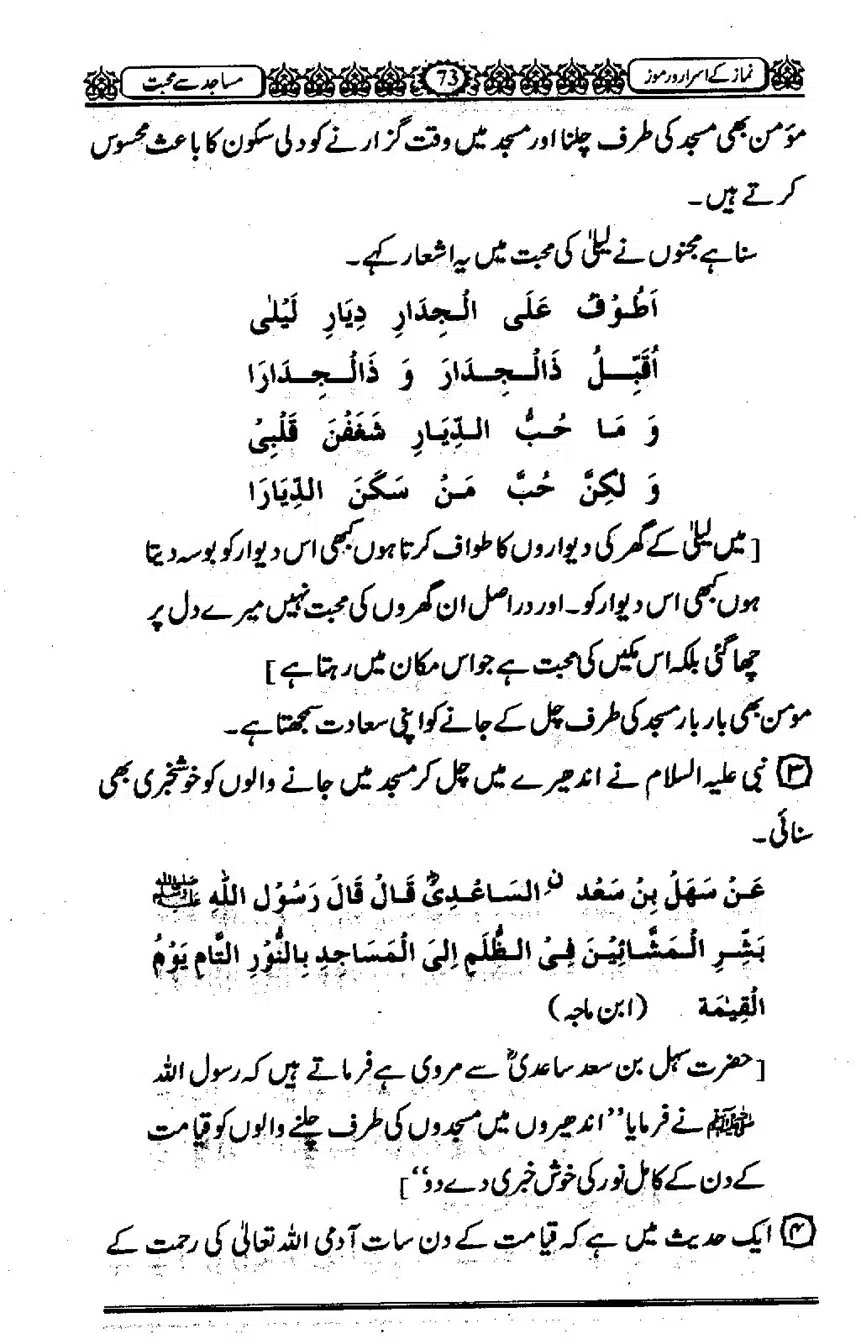 نماز کے اسرار و رموز 73 مساجد سے محبت
مؤمن بھی مسجد کی طرف چلنا اور مسجد میں وقت گزارنے کو دلی سکون کا باعث محسوس
کرتے ہیں۔
سنا ہے مجنوں نے لیلیٰ کی محبت میں یہ اشعار کہے۔
اَطُوْفُ عَلَى الْجِدَارِ دِيَارِ لَيْلٰى
اُقَبِّلُ ذَالْجِدَارَ وَ ذَالْجِدَارَا
وَ مَا حُبُّ الدِّيَارِ شَغَفْنَ قَلْبِىْ
وَ لٰكِنَّ حُبَّ مَنْ سَكَنَ الدِّيَارَا
[میں لیلیٰ کے گھر کی دیواروں کا طواف کرتا ہوں کبھی اس دیوار کو بوسہ دیتا
ہوں کبھی اس دیوار کو۔ اور دراصل ان گھروں کی محبت نہیں میرے دل پر
چھا گئی بلکہ اس مکیں کی محبت ہے جو اس مکان میں رہتا ہے]
مومن بھی بار بار مسجد کی طرف چل کے جانے کو اپنی سعادت سمجھتا ہے۔
۳ نبی علیہ السلام نے اندھیرے میں چل کر مسجد میں جانے والوں کو خوشخبری بھی
سنائی۔
عَنْ سَهَلْ بِنْ سَعْد نِ السَاعْدِىْؓ قَالْ قَالَ رَسُوْل اللّٰهِ ﷺ
بَشِّرِ الْمَشَّائِيْنَ فِىْ الظُّلَمِ اِلىَ الْمَسَاجِدِ بِالنُّوْرِ التَّامِ يَوْمُ
الْقِيٰمَة (ابن ماجہ)
[حضرت سہل بن سعد ساعدیؓ سے مروی ہے فرماتے ہیں کہ رسول اللہ
ﷺ نے فرمایا ’’اندھیروں میں مسجدوں کی طرف چلنے والوں کو قیامت
کے دن کے کامل نور کی خوش خبری دے دو‘‘]
۴ ایک حدیث میں ہے کہ قیامت کے دن سات آدمی اللہ تعالیٰ کی رحمت کے